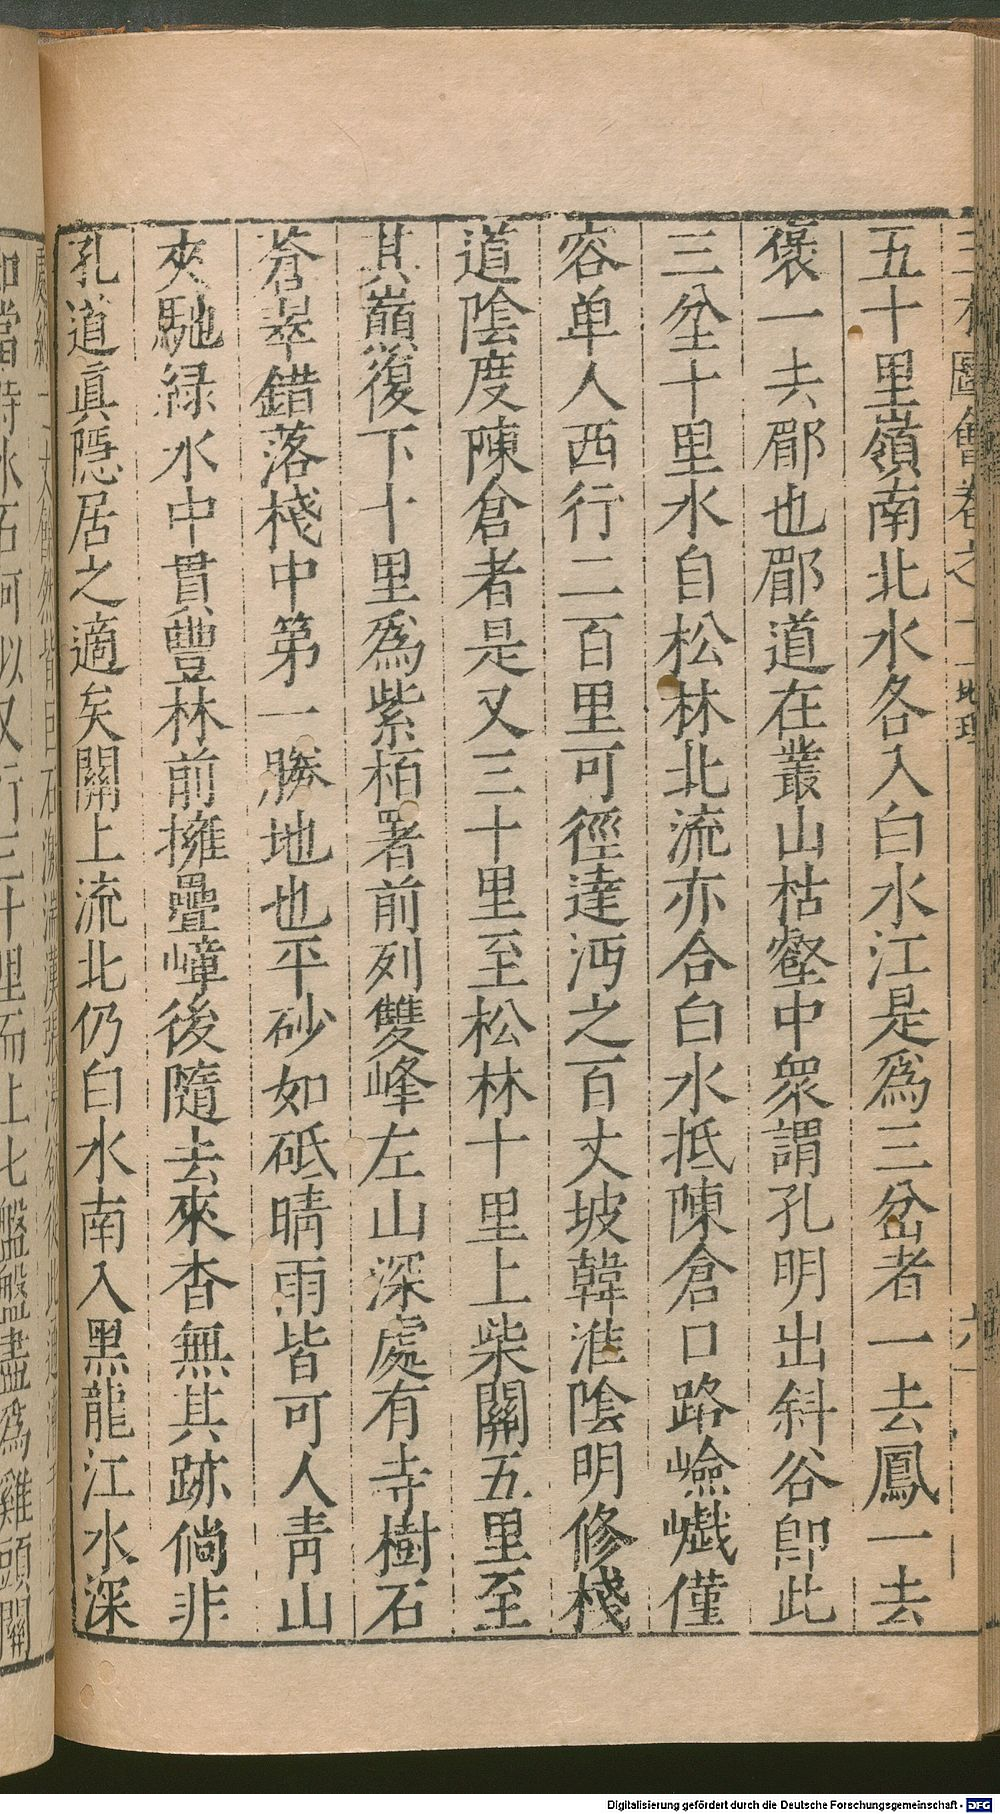 五十里嶺南北水各入白水江是爲三岔者一去鳳一去
褒一去郿也郿道在叢山枯壑中衆謂孔明出斜谷卽此
三岔十里水自松林北流亦合白水抵陳倉口路嶮巇僅
容单人西行二百里可徑達沔之百丈坡韓淮陰明修棧
道陰度陳倉者是又三十里至松林十里上柴關五里至
其巔復下十里爲紫栢署前列雙峰左山深處有寺樹石
蒼翠錯落棧中第一勝地也平砂如砥晴雨皆可人靑山
夾馳緑水中貫豐林前擁疊嶂後隨去來杳無其跡倘非
孔道眞隱居之適矣關上流北仍白水南入黑龍江水深
Digitalisierung gefördert durch die Deutsche Forschungsgemeinschaft - DFG